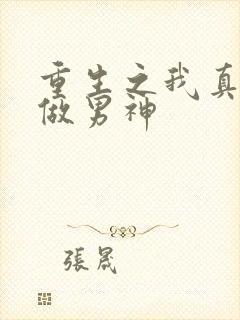 重生之我真
做男神
張晟